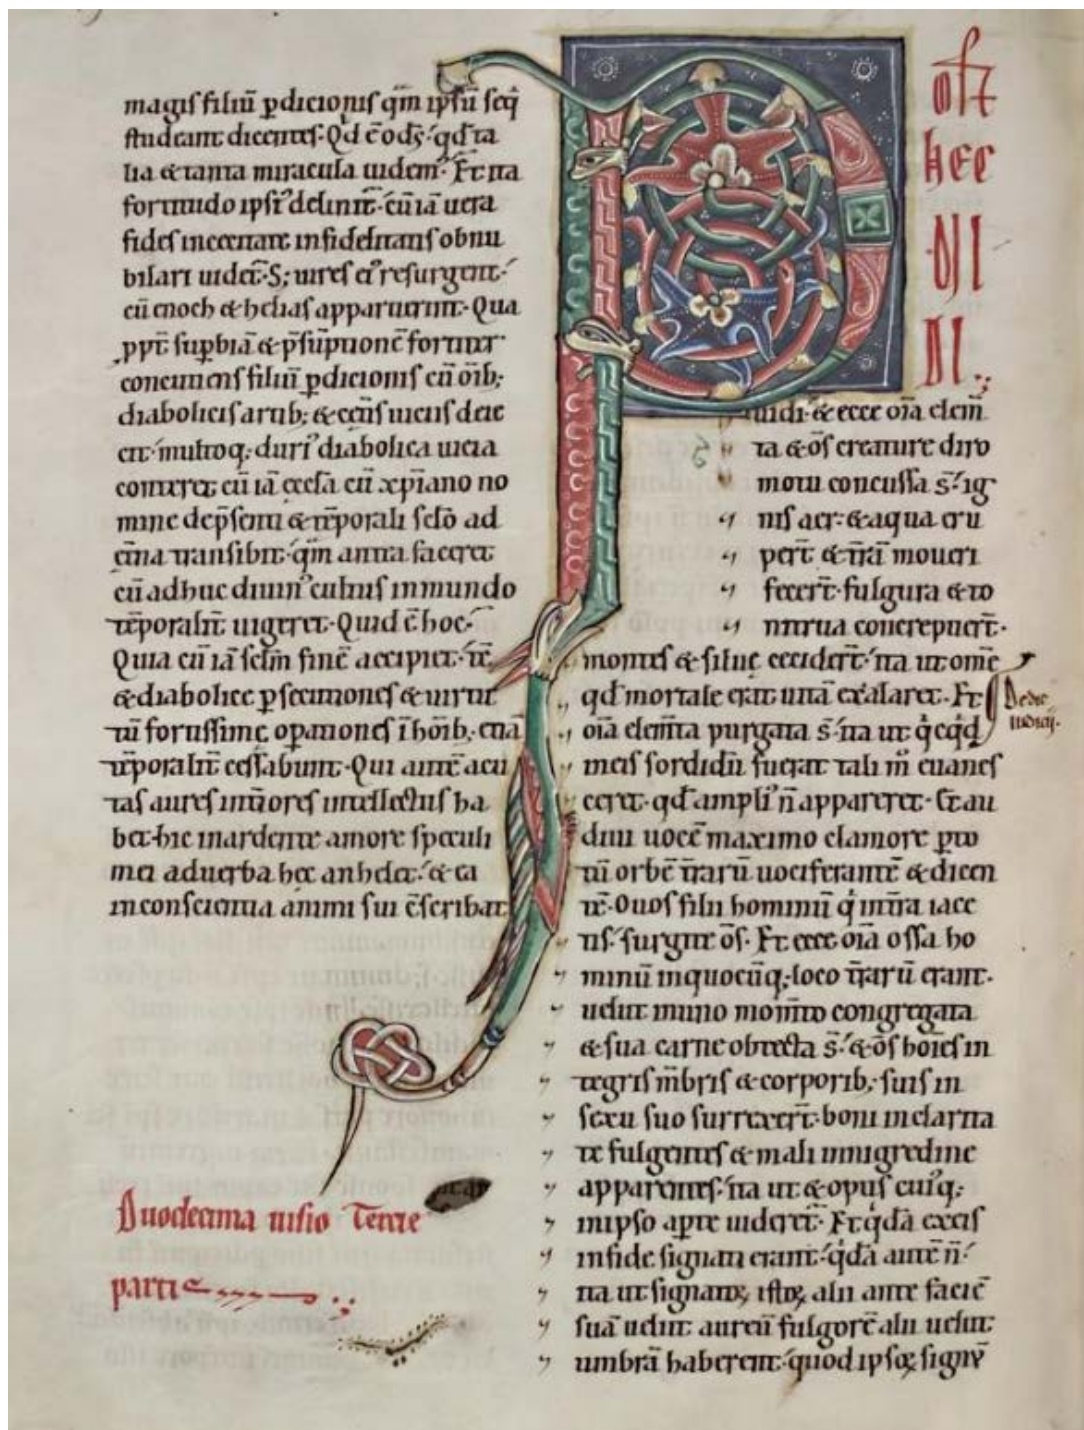 magis filiū ꝑdicionis qm̄ ipsū seq̄
studeant dicentes· Qd ē ods̄· qd ta
lia & tanta miracula uidem᷒· Et ita
fortitudo ipsi᷒ delinit᷑· cū iā uera
fides in cecitate infidelitatis obnu
bilari uidet᷑· S; uires ei᷒ resurgent·
cū enoch & helias apparuerint· Qua
ppt̄ suꝑbiā & p̄sūptionē fortiter
concutiens filiū ꝑdicionis cū oīb;
diabolicis artib; & eccūs uicus deic
ert· multoq; duri᷒ diabolica uicia
conteret cū iā ecclā cū xp̄iano no
mine dep̄senti & tēporali sclo ad
etna transibit· qm̄ antea faceret
cū adhuc diuin᷒ cultus in mundo
tēporalit̄ uigeret· Quid ē hoc·
Quia cū iā sclm̄ finē accipiet· tē
& diabolice ꝑsecutiones & uirtu
tū fortissime oꝑationes ī hoīb; etiā
tēporalit̄ cessabunt· Qui autē acu
tas aures interiores intellectus ha
bet· hic in ardente amore speculi
mei ad uerba hec anhelet· & ea
in conscientia animi sui c̄scribat
Duodecima uisio Tercie
partis
Post
hec
ui
di
uidi· & ecce oīa elem̄
ta & oēs creature diro
motu concussa s̄· ig
nis aer· & aqua eru
pert̄ & tr̄ā moueri
fecert̄· fulgura & to
nitrua concrepuert̄·
montes & silue cecidert̄· ita ut om̄e
qd mortale erat uitā exalaret· Et
oīa elem̄ta purgata s̄· ita ut q̇cq̇d
De die
iudicij·
in eis sordidū fuerat tali m̊ euanes
ceret· qd ampli᷒ n̄ appareret· Et au
diui uocē maximo clamore ꝑ to
tū orbē tr̄arū uociferantē & dicen
tē· O uos filii hominū q̇ in tr̄a iace
tis· surgite oēs· Et ecce oīa ossa ho
minū in quocūq; loco tr̄arū erant·
uelut in uno mom̄to congregata
& sua carne obtecta s̄· & oēs hoīes in
tegris mēbris & corporib; suis in
sexu suo surrexert̄· boni in clarita
te fulgentes & mali in nigredine
apparentes· ita ut & opus cui᷒q;
in ipso aꝑte uideret᷑· Et q̇dā ex eis
in fide signati erant· q̇dā autē n̄·
ita ut signatoꝝ istoꝝ alii ante faciē
suā uelut aureū fulgorē alii uelut
umbrā haberent· quod ipsoꝝ signū